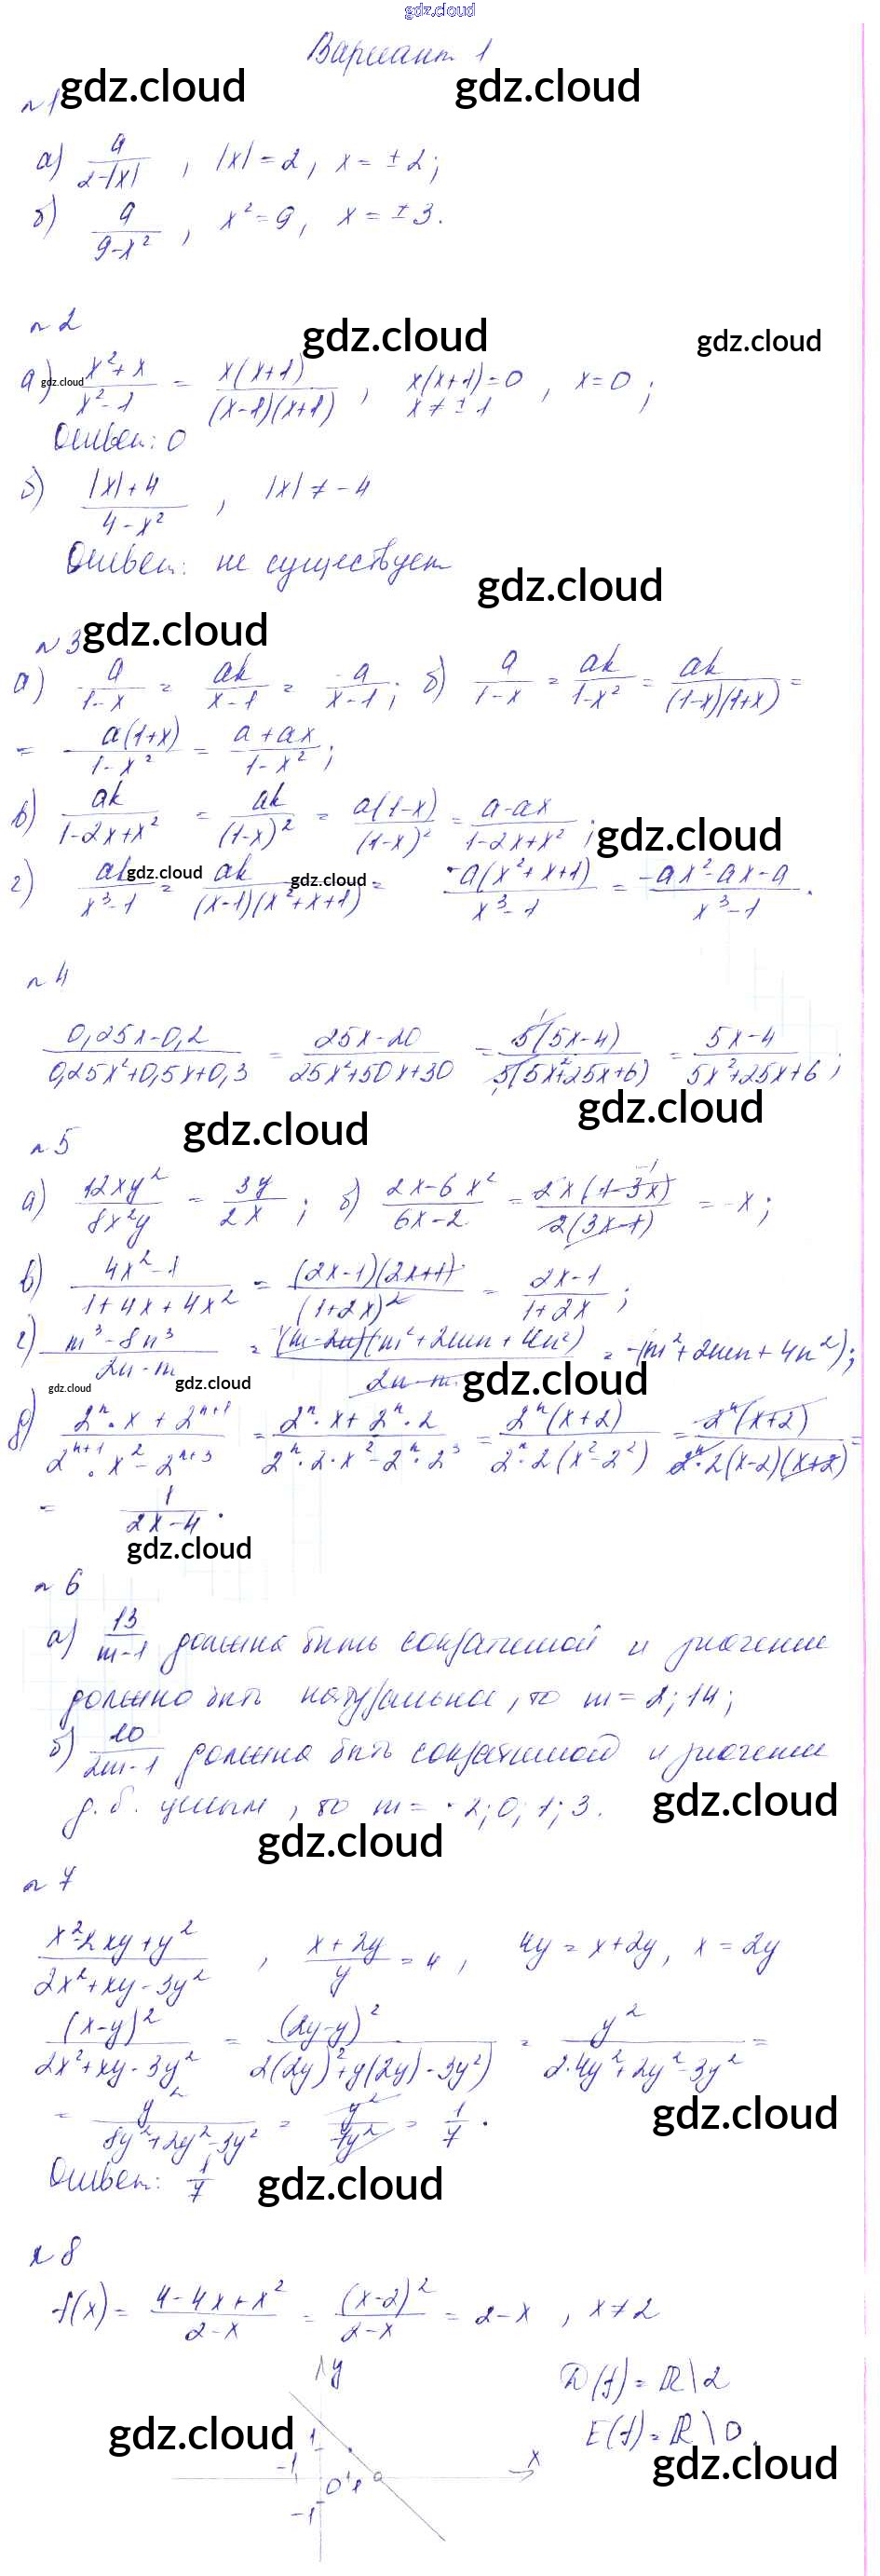 gdz.cloud
Вариант 1
gdz.cloud gdz.cloud
№1
а) a/(2-|x|), |x| = 2, x = ±2;
б) a/(9-x²), x² = 9, x = ±3.
№2
gdz.cloud gdz.cloud
а) gdz.cloud (x²+x)/(x²-1) = x(x+1)/((x-1)(x+1)), x(x+1)=0, x≠±1, x=0;
Ответ: 0
б) (|x|+4)/(4-x²), |x| ≠ -4
Ответ: не существует
gdz.cloud
№3 gdz.cloud
а) a/(1-x) = ak/(x-1) = -a/(x-1); б) a/(1-x) = ak/(1-x²) = ak/((1-x)(1+x)) =
= a(1+x)/(1-x²) = (a+ax)/(1-x²);
в) ak/(1-2x+x²) = ak/(1-x)² = a(1-x)/(1-x)² = (a-ax)/(1-2x+x²); gdz.cloud
г) ak/(x³-1) = ak/((x-1)(x²+x+1)) = -a(x²+x+1)/(x³-1) = (-ax²-ax-a)/(x³-1).
gdz.cloud gdz.cloud
№4
(0,25x-0,2)/(0,25x²+0,5x+0,3) = (25x-20)/(25x²+50x+30) = 5(5x-4)/(5(5x²+25x+6)) = (5x-4)/(5x²+25x+6);
gdz.cloud
№5 gdz.cloud
а) 12xy²/8x²y = 3y/2x; б) (2x-6x²)/(6x-2) = 2x(1-3x)/(2(3x-1)) = -x;
в) (4x²-1)/(1+4x+4x²) = (2x-1)(2x+1)/(1+2x)² = (2x-1)/(1+2x);
г) (m³-8n³)/(2n-m) = (m-2n)(m²+2mn+4n²)/(2n-m) = -(m²+2mn+4n²);
gdz.cloud gdz.cloud gdz.cloud
д) (2ⁿ·x+2ⁿ⁺¹)/(2ⁿ⁺¹·x²-2ⁿ⁺³) = (2ⁿ·x+2ⁿ·2)/(2ⁿ·2·x²-2ⁿ·2³) = 2ⁿ(x+2)/(2ⁿ·2(x²-2²)) = 2ⁿ(x+2)/(2ⁿ·2(x-2)(x+2)) =
= 1/(2x-4).
gdz.cloud
№6
а) 13/(m-1) должна быть сократимой и значение
должно быть натуральное, то m = 2; 14;
б) 20/(2m-1) должна быть сократимой и значение
д.б. целым, то m = -2; 0; 1; 3. gdz.cloud
gdz.cloud
№7
(x²-2xy+y²)/(2x²+xy-3y²), (x+2y)/y = 4, 4y = x+2y, x = 2y
(x-y)²/(2x²+xy-3y²) = (2y-y)²/(2(2y)²+y(2y)-3y²) = y²/(2·4y²+2y²-3y²) =
= y²/(8y²+2y²-3y²) = y²/7y² = 1/7.
gdz.cloud
Ответ: 1/7 gdz.cloud
№8
f(x) = (4-4x+x²)/(2-x) = (x-2)²/(2-x) = 2-x, x≠2
y
D(f) = ℝ\2
E(f) = ℝ\0.
gdz.cloud
1
gdz.cloud
-1 0 1 x
-1